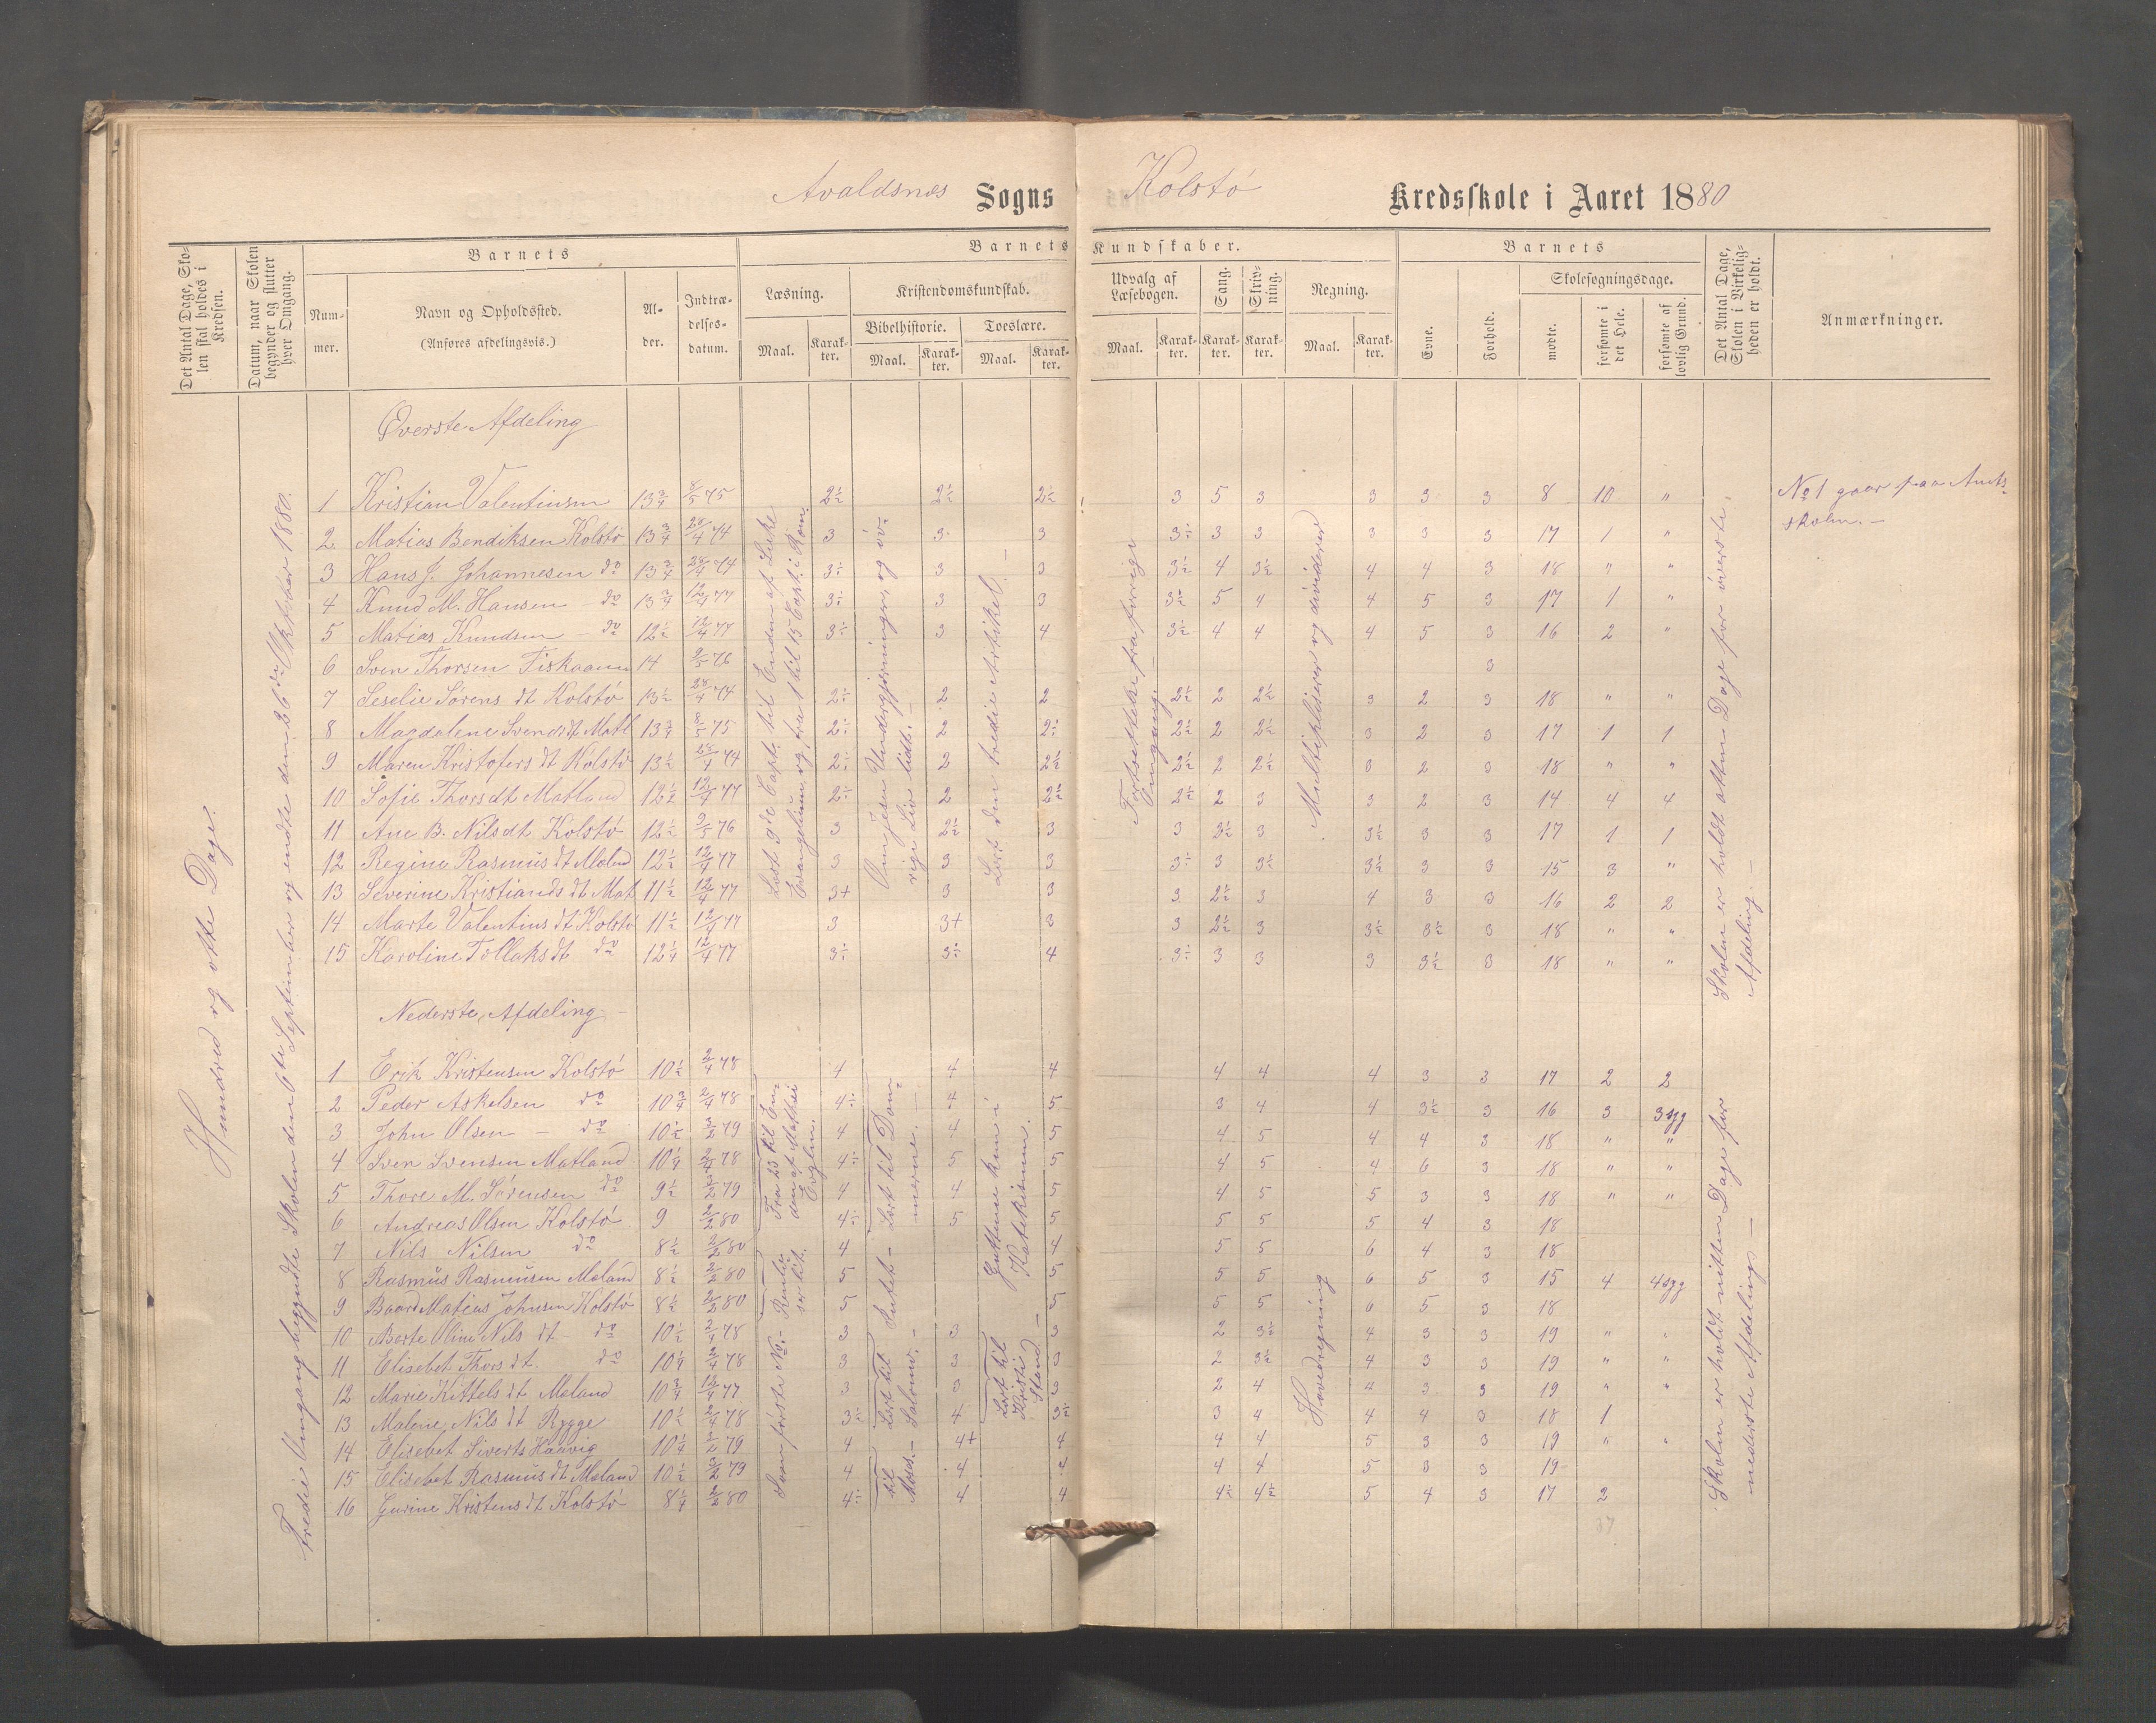 Avaldsnes Sogns Kolstø Kredsskole i Aaret 1880
Det Antal Dage, Skolen skal holdes i Kredsen.
Datum, naar Skolen begynder og slutter hver Omgang.
Barnets
Nummer.
Navn og Opholdssted.
(Anføres afdelingsvis.)
Alder.
Indtrædelsesdatum.
Barnets Kundskaber.
Læsning.
Maal. Karakter.
Kristendomskundskab.
Bibelhistorie.
Maal. Karakter.
Troeslære.
Maal. Karakter.
Udvalg af Læsebogen.
Maal. Karakter.
Sang.
Karakter.
Skrivning.
Karakter.
Regning.
Maal. Karakter.
Barnets
Evne.
Forhold.
Skolesøgningsdage.
mødte.
forsømte i det Hele.
forsømte af lovlig Grund.
Det Antal Dage, Skolen i Virkeligheden er holdt.
Anmærkninger.
Hundred og otte Dage.
Tredie Omgang begyndte Skolen den 6te September og endte den 26de Oktober 1880.
Øverste Afdeling
1 Kristian Valentinsen 13 3/4 8/5 75 2½ 2½ 2½ 3 5 3 3 3 3 8 10 "
2 Matias Bendiksen Kolstø 13 3/4 28/4 74 3 3 3 3÷ 3 3 3 3 3 17 1 "
3 Hans J. Johannesen do 13 3/4 28/4 74 3÷ 3 3 3½ 4 3½ 4 4 3 18 " "
4 Knud M. Hansen do 13 3/4 12/4 77 3÷ 3 3 3½ 5 4 4 5 3 17 1 "
5 Matias Knudsen do 12½ 12/4 77 3÷ 3 4 3½ 4 4 4 5 3 16 2 "
6 Sven Thorsen Fiskaaen 14 2/5 76 3
7 Seselie Sørens dt Kolstø 13½ 28/4 74 2÷ 2 2 2½ 2 2½ 3 2 3 18 " "
8 Magdalene Svends dt Matl 13 3/4 8/5 75 2÷ 2 2÷ 2½ 2 2½ 3 2 3 17 1 1
9 Maren Kristofers dt Kolstø 13½ 28/4 74 2÷ 2 2½ 2½ 2 2½ 3 2 3 18 " "
10 Sofie Thors dt Matland 12½ 12/4 77 2÷ 2 2½ 2½ 2 3 3 2 3 14 4 4
11 Ane B. Nils dt Kolstø 12½ 2/5 76 3 2½ 3 3 3½ 3 3½ 3 3 17 1 1
12 Regine Rasmus dt Mæland 12½ 12/4 77 3 3 3 3÷ 3 3½ 3½ 3 3 15 3 "
13 Severine Kristians dt Mat 11½ 12/4 77 3+ 3 3 3 2½ 3 4 3 3 16 2 2
14 Marte Valentins dt Kolstø 11½ 12/4 77 3 3+ 3 3 2½ 3 3½ 3½ 3 18 " "
15 Karoline Tollaks dt do 12¼ 12/4 77 3÷ 3÷ 4 3÷ 3 3 3 3½ 3 18 " "
Læst 9de Capt. til Enden af Luke Evangelium og fra 1 til 15 Capt. i Rom.
Om Jesu Undergjerninger og øvrige Liv lidt. -
Læst den tredie Artikel. -
Fortsættelse fra forrige Omgang.
Multipliserer og dividerer.
Skolen er holdt atten Dage for øverste Afdeling. -
No 1 gaar paa Amtsskolen. -
Nederste Afdeling. -
1 Erik Kristensen Kolstø 10½ 2/4 78 4 4 4 4 4 4 3 3 17 2 2
2 Peder Askelsen do 10 3/4 2/4 78 4÷ 4 5 3 4 4 3½ 3 16 3 3 syg
3 John Olsen - do 10½ 2/2 79 4 4 5 4 5 4 4 3 18 " "
4 Sven Svensen Matland 10¼ 2/4 78 4÷ 5 5 4 5 4 6 3 18 " "
5 Thore M. Sørensen do 9½ 2/2 79 4 4 5 4 5 5 3 3 18 " "
6 Andreas Olsen Kolstø 9 2/2 80 4÷ 5 5 5 5 5 4 3 18
7 Nils Nilsen do 8½ 2/2 80 4 4 5 5 6 4 3 18
8 Rasmus Rasmusen Mæland 8½ 2/2 80 5 5 5 5 6 5 3 15 4 4 syg
9 Baard Matias Johnsen Kolstø 8½ 2/2 80 5 5 5 5 6 5 3 18
10 Berte Oline Nils dt - do 10½ 2/4 78 3 3 3 2 3½ 4 3 3 19 "
11 Elisebet Thors dt. do 10¼ 2/4 78 3 3 3 2 3½ 4 3 3 19 " "
12 Marie Kittels dt Mæland 10 3/4 12/4 77 3 3 3 2 4 4 3 3 19 " "
13 Malene Nils dt Rygge 10½ 2/4 78 3½ 4 3½ 3 4 4 4 3 18 1
14 Elisebet Siverts Haavig 10¼ 2/2 79 4 4+ 4 4 4 5 3 3 19 " "
15 Elisebet Rasmus dt Mæland 10½ 2/2 79 4 4 4 4 4 5 3 3 19
16 Gurine Kristens dt Kolstø 8¼ 2/2 80 4÷ 4 4 4½ 4½ 5 4 3 17 2
37
Fra 23 til Enden af Mathei Evglm.
Læst til Dommerne.
Intet -
Guttene kun i Katekismen.
Læst til Salomo. -
til Moses. -
Læst til Kristi Stand -
Hovedregning
Skolen er holdt nitten Dage for nederste Afdeling. -